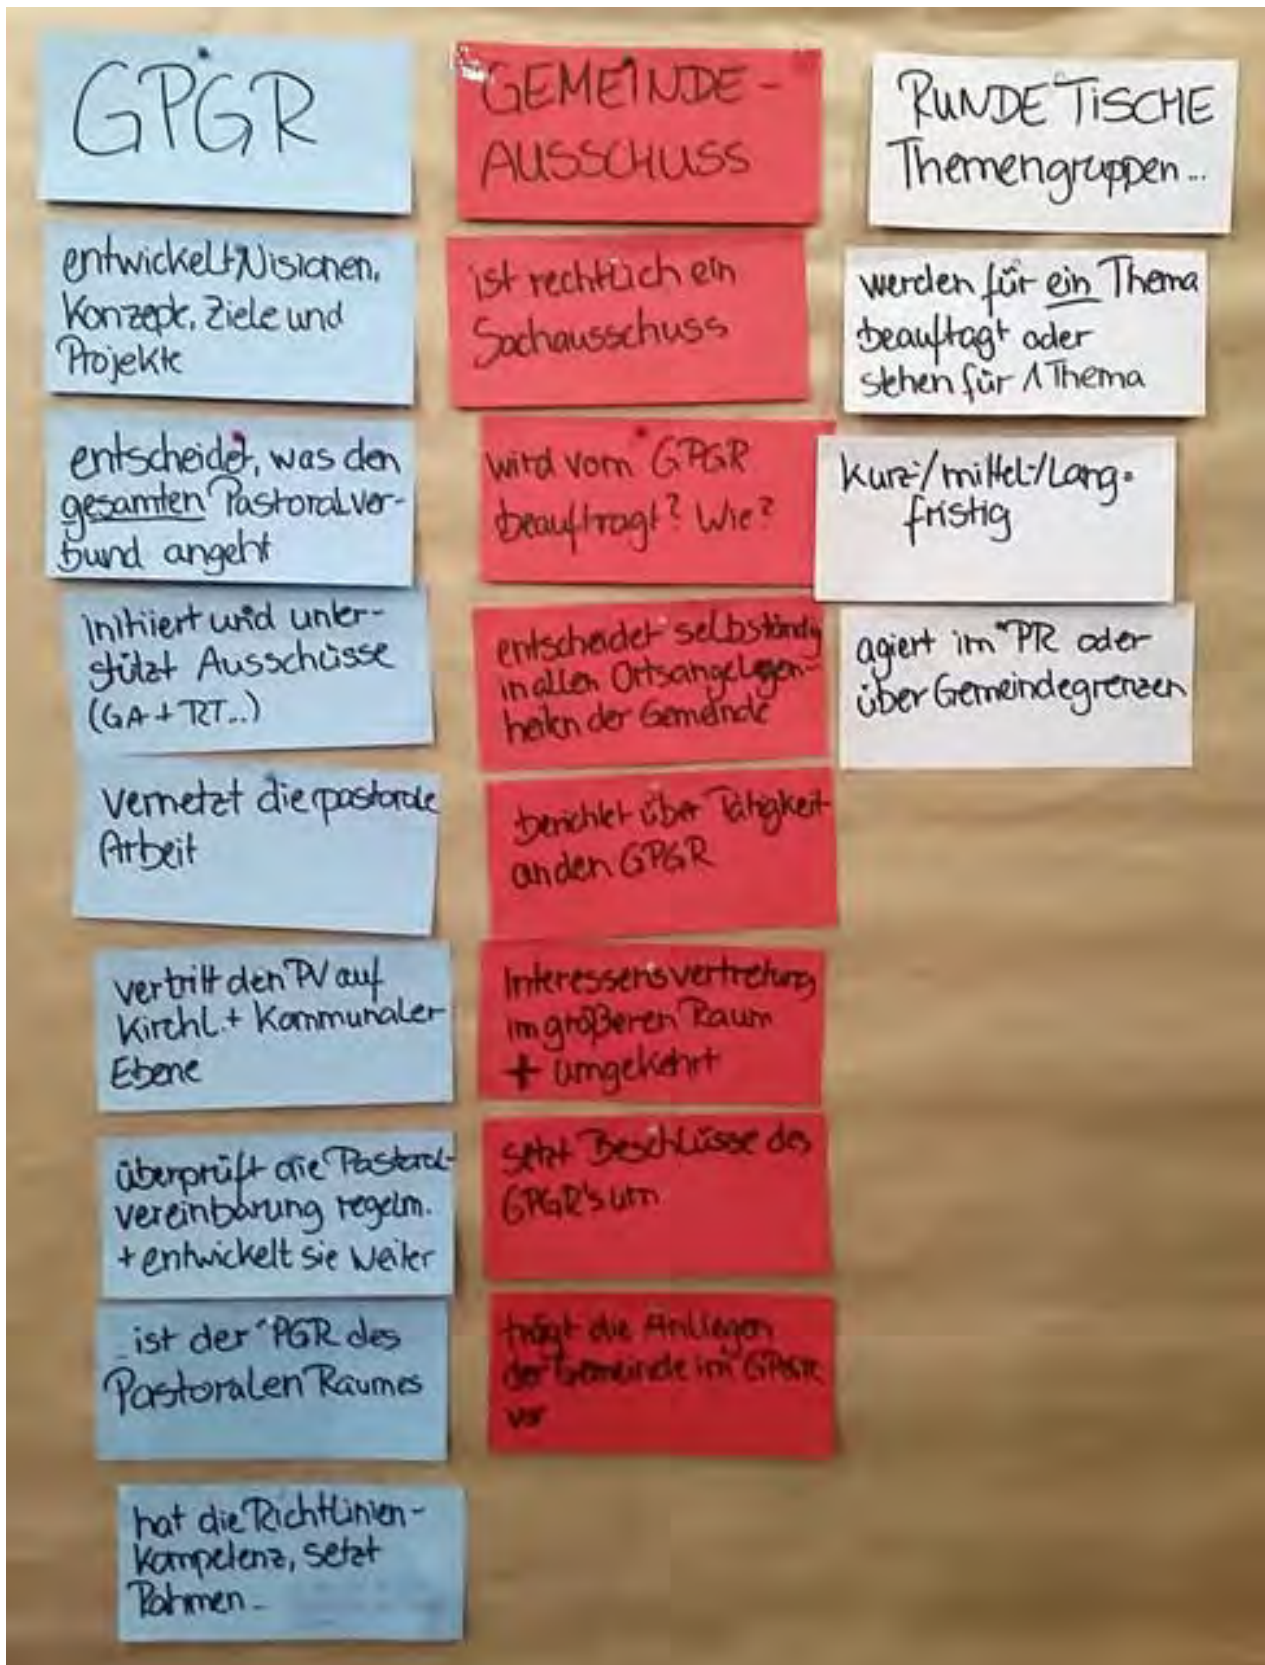 GPGR
entwickelt Visionen,
Konzepte, Ziele und
Projekte
entscheidet, was den
gesamten Pastoralver-
bund angeht
initiiert und unter-
stützt Ausschüsse
(GA + RT...)
vernetzt die pastorale
Arbeit
vertritt den PV auf
Kirchl. + Kommunaler
Ebene
überprüft die Pastoral-
vereinbarung regelm.
+ entwickelt sie weiter
ist der PGR des
Pastoralen Raumes
hat die Richtlinien-
kompetenz, setzt
Rahmen...
GEMEINDE-
AUSSCHUSS
ist rechtlich ein
Sachausschuss
wird vom GPGR
beauftragt? Wie?
entscheidet selbständig
in allen Ortsangelegen-
heiten der Gemeinde
berichtet über Tätigkeit
an den GPGR
Interessensvertretung
im größeren Raum
+ umgekehrt
setzt Beschlüsse des
GPGR's um
trägt die Anliegen
der Gemeinde im GPGR
vor
RUNDE TISCHE
Themengruppen...
werden für ein Thema
beauftagt oder
stehen für 1 Thema
kurz-/mittel-/lang-
fristig
agiert im PR oder
über Gemeindegrenzen